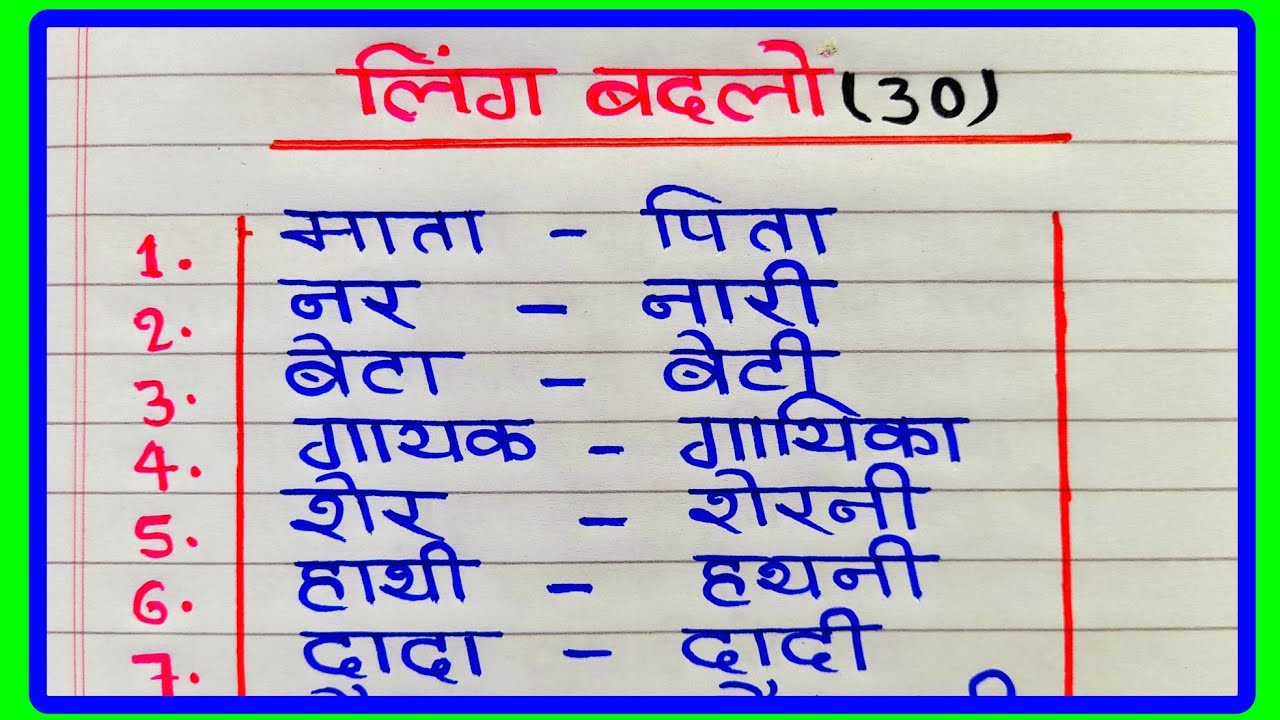 लिंग बदलो (30)
1. माता - पिता
2. नर - नारी
3. बेटा - बेटी
4. गायक - गायिका
5. शेर - शेरनी
6. हाथी - हथनी
7. दादा - दादी